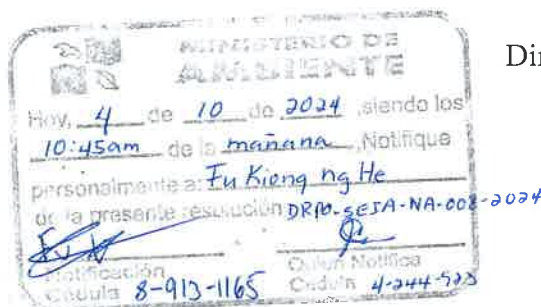 MINISTERIO DE
AMBIENTE
Hoy, 4 de 10 de 2024, siendo los
10:45am de la mañana, Notifique
personalmente a: Fu Kiong ng He
de la presente resolución DRPO-SEIA-NA-008-2024
Notificación
Cédula 8-913-1165
Quien Notifica
Cédula 4-244-523
Din